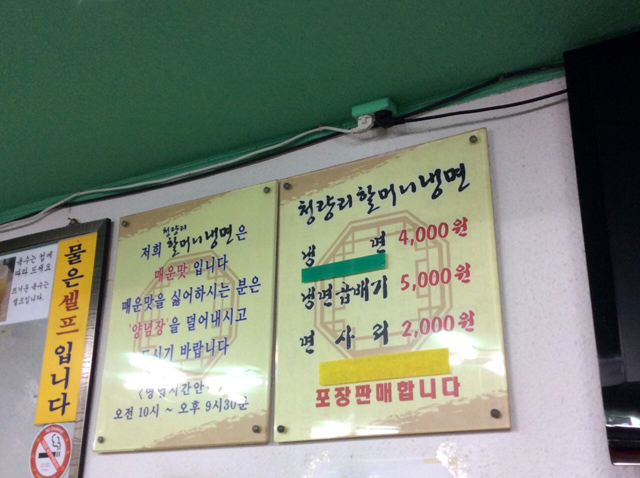 육수는 컵에
따라 드세요
뜨거운 육수는
셀프입니다.
물은 셀프 입니다
청량리
저희 할머니냉면은
매운맛입니다
매운맛을 싫어하시는 분은
'양념장'을 덜어내시고
드시기 바랍니다
오전 10시 ~ 오후 9시30분
청량리할머니냉면
냉 면 4,000원
냉면곱배기 5,000원
면 사 리 2,000원
포장판매합니다